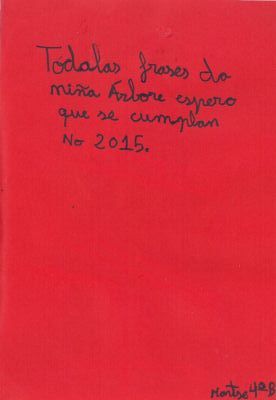 Tódalas frases da
miña Árbore espero
que se cumplan
No 2015.
Montse 4ºB